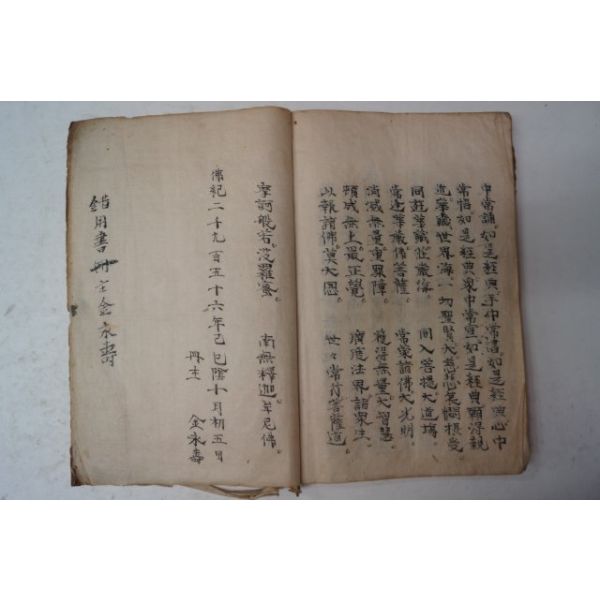 中常誦。如是經典手中常書。如是經典心中
常悟如是經典衆中常宣。如是經典願得親
進華嚴世界海一切聖賢大慈悲哀憫攝受
同莊華藏莊嚴海。同入菩提大道場
常逢華嚴佛菩薩。常蒙諸佛大光明
消滅無量衆罪障。獲得無量大智慧
頓成無上最正覺。廣度法界諸衆生
以報諸佛莫大恩。世々常行菩薩道
摩訶般若波羅蜜。南無釋迦牟尼佛。
佛紀二千九百五十六年己巳陰十月初五日
冊主 金永壽
用書冊主金永壽